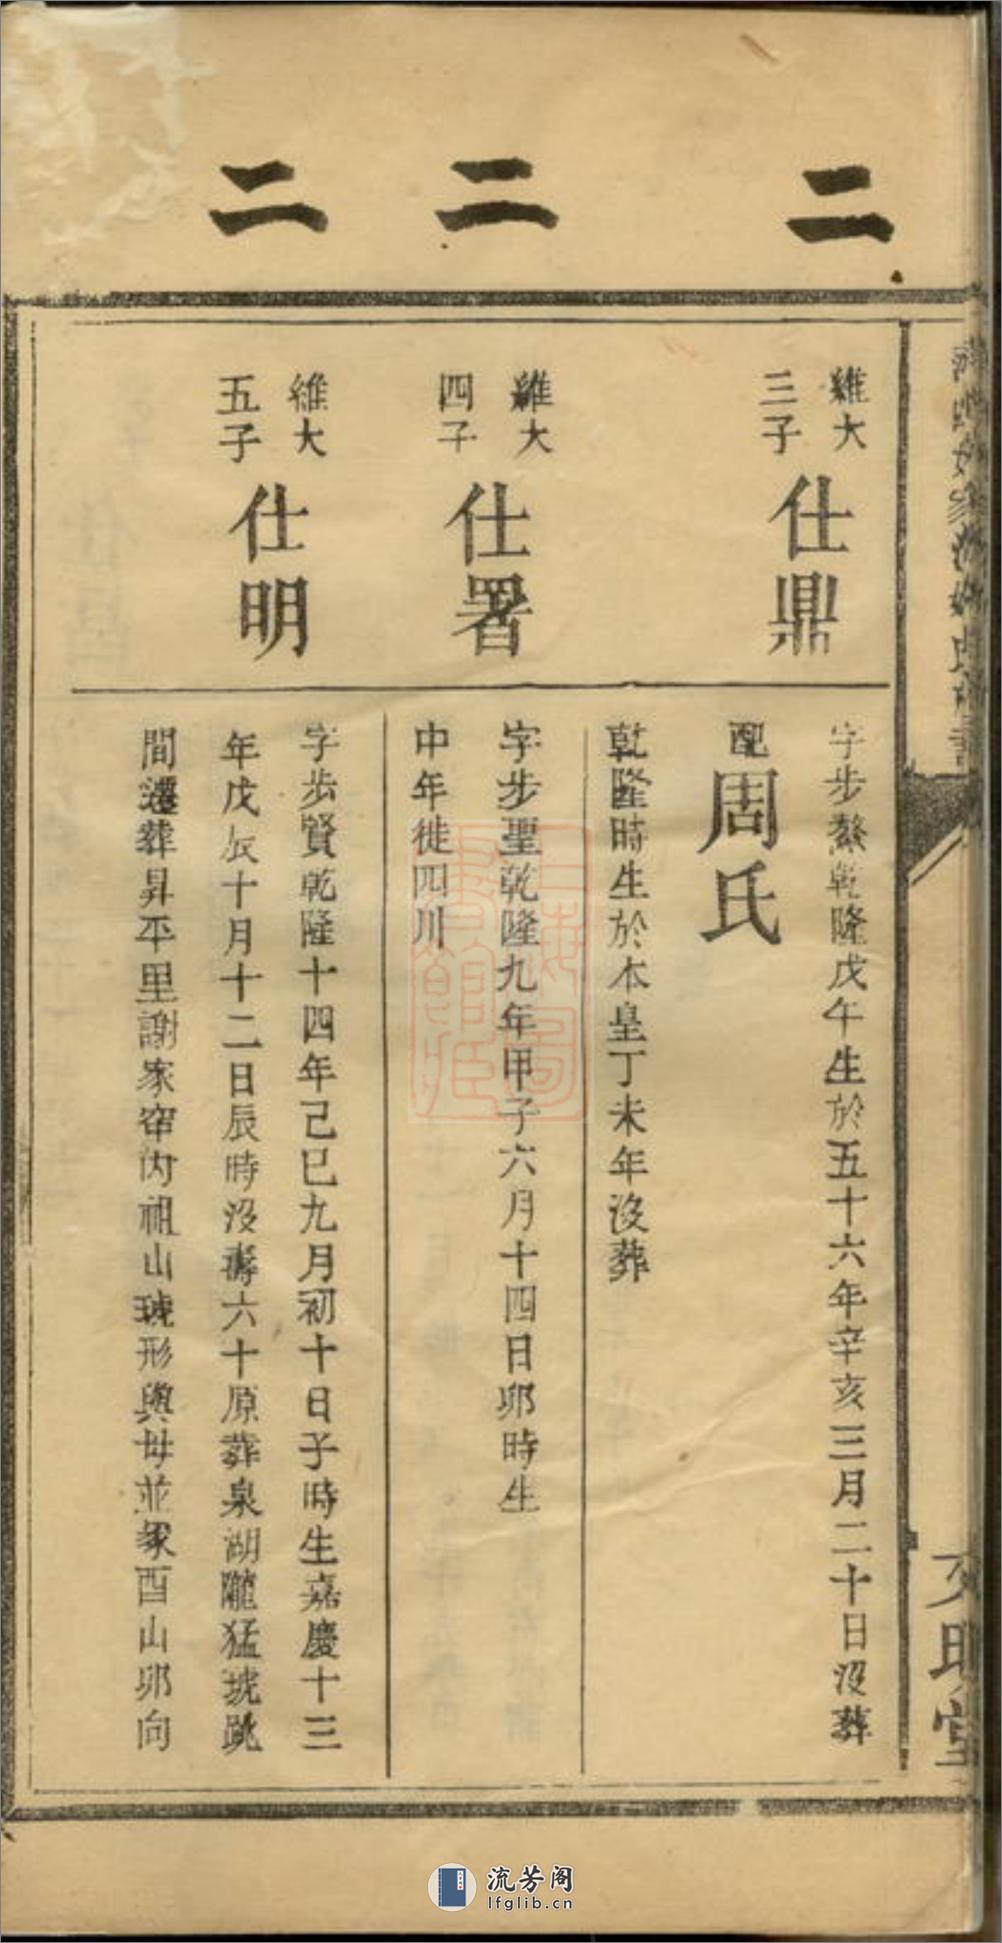 二
維大
三子
仕鼎
字步鰲乾隆戊午生於五十六年辛亥三月二十日沒葬
配周氏
乾隆時生於本皇丁未年沒葬
二
維大
四子
仕署
字步聖乾隆九年甲子六月十四日卯時生
中年徙四川
二
維大
五子
仕明
字步賢乾隆十四年己巳九月初十日子時生嘉慶十三
年戊辰十月十二日辰時沒壽六十原葬泉湖隴猛琥跳
間遷葬昇平里謝家帘內祖山琥形與母並冢酉山卯向
文明堂
流芳阁
lfglib.cn